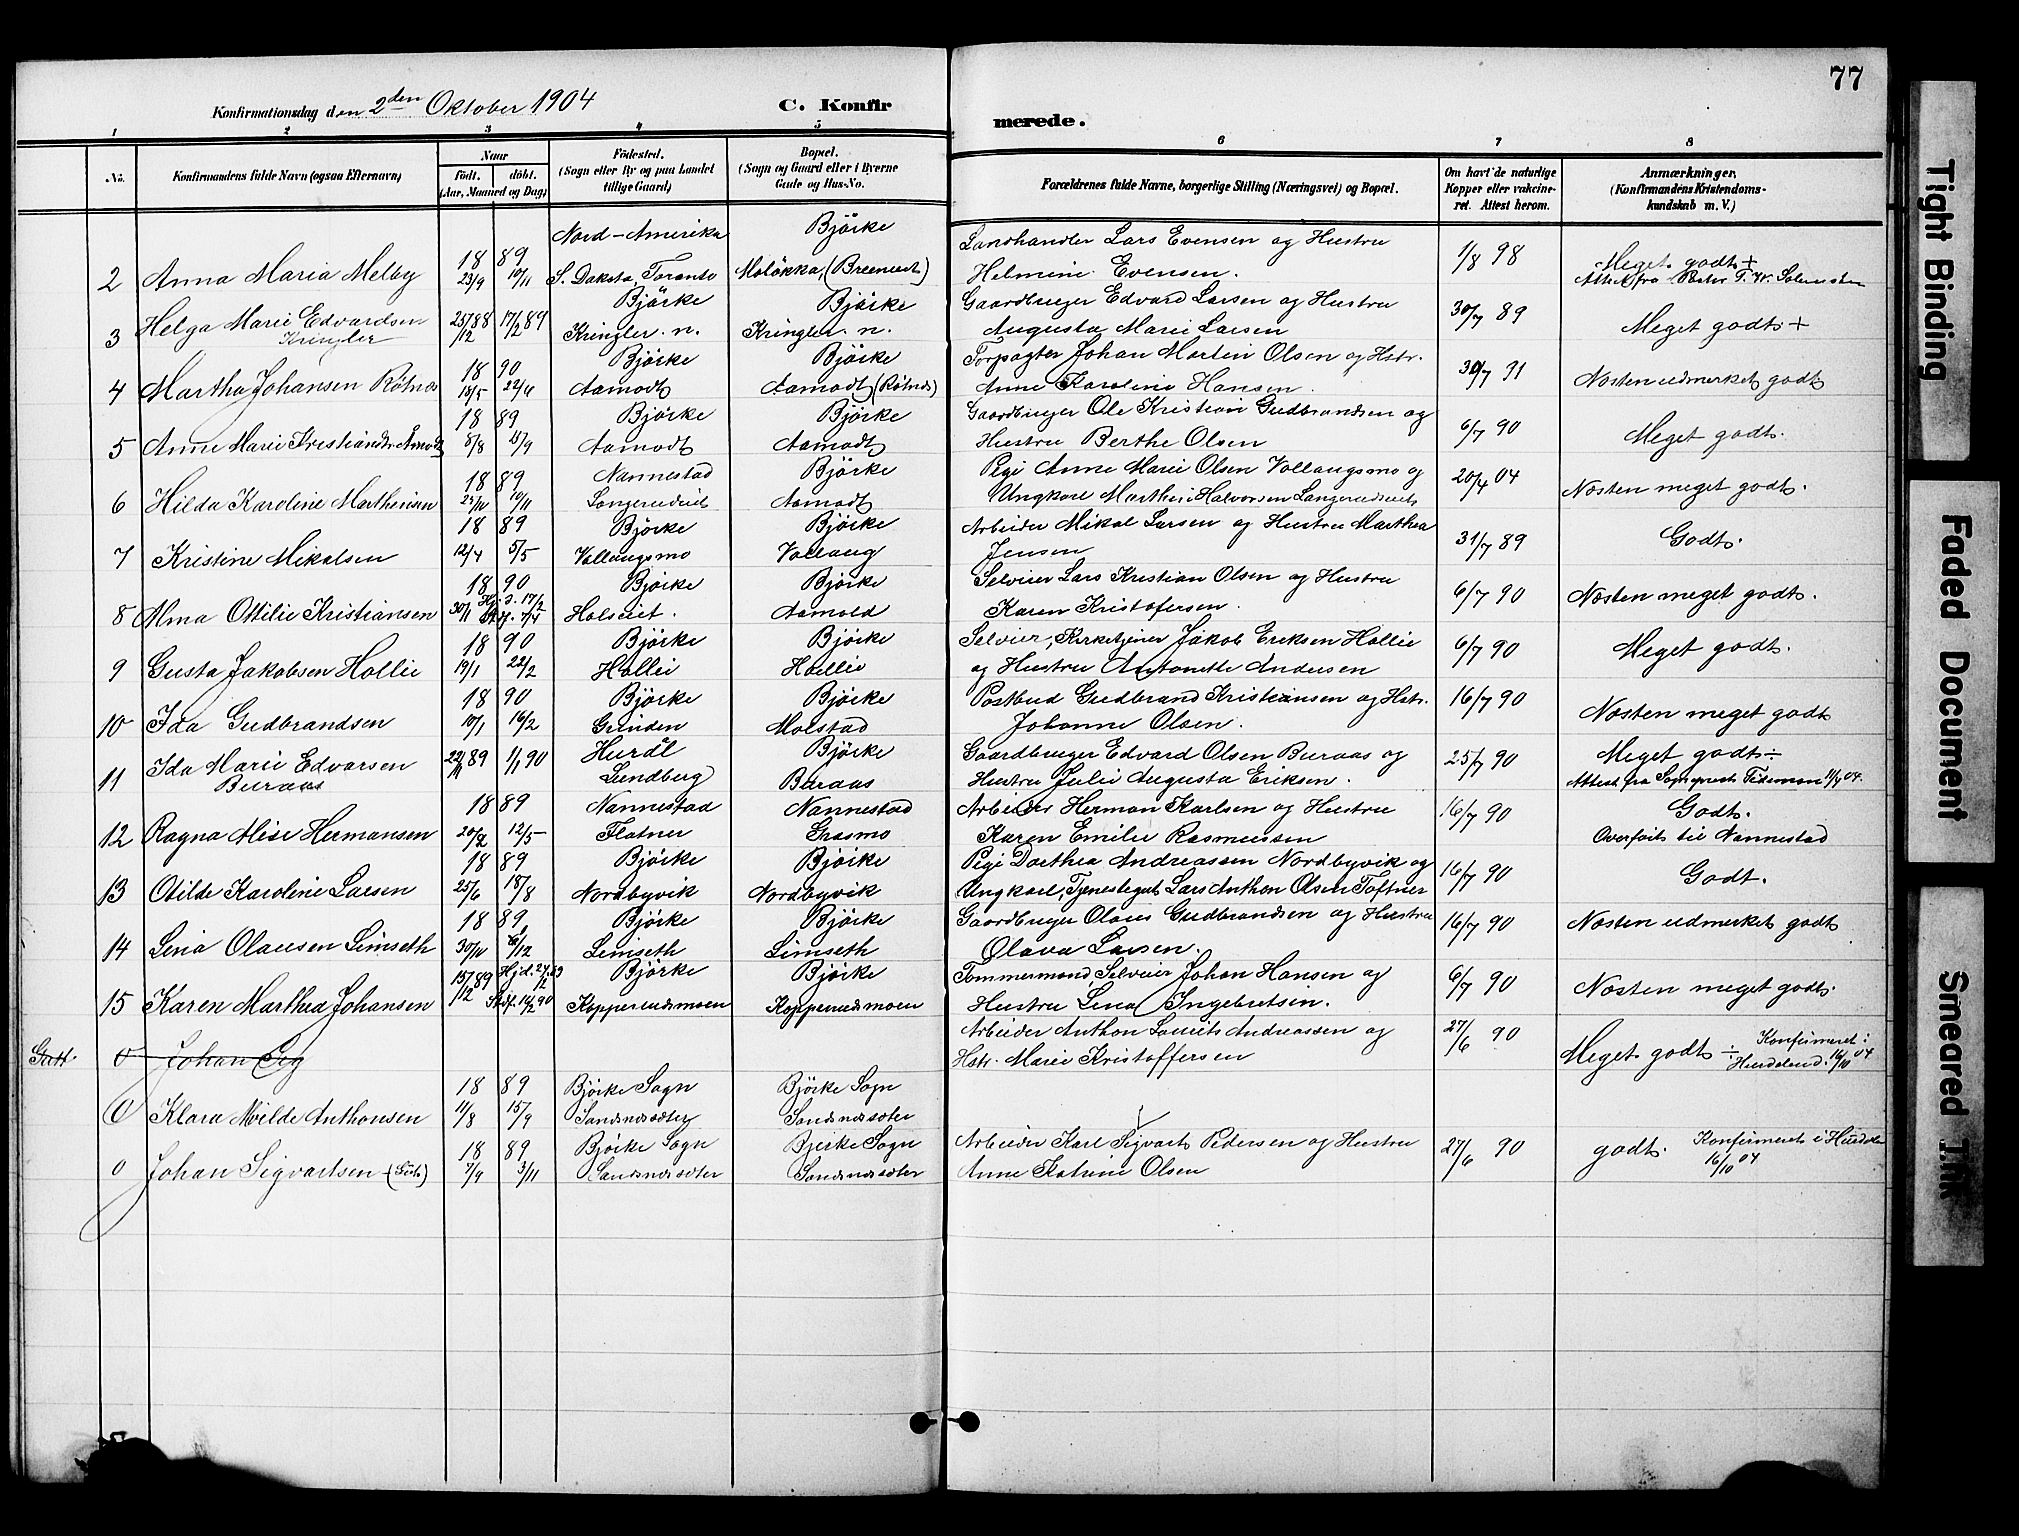 77
Konfirmationsdag den 2den Oktober 1904
C. Konfirmerede.
1 2 3 4 5 6 7 8
No.
Konfirmandens fulde Navn (ogsaa Efternavn)
Naar
født. døbt.
(Aar, Maaned og Dag)
Födested.
(Sogn eller By og paa Landet
tillige Gaard)
Bopæl.
(Sogn og Gaard eller i Byerne
Gade og Hus-No.
Forældrenes fulde Navne, borgerlige Stilling (Næringsvei) og Bopæl.
Om havt de naturlige
Kopper eller vakcine-
ret. Attest herom.
Anmærkninger.
(Konfirmandens Kristendoms-
kundskab m. V.)
18 89 Nord-Amerika Bjørke Landhandler Lars Evensen og Hustru 1/8 98 Meget godt +
2 Anna Maria Melby 23/9 10/11 S. Dakota, Toronto Moløkka, Helmine Evensen. Attest fra Pastor
3 Helga Marie Edvardsen 25/12 88 17/2 89 Bjørke Bjørke Gaardbruger Edvard Larsen og Hustru 30/7 89 Meget godt +
Kringler Kringler. n. Kringler. n. Augusta Marie Larsen
18 90 Bjørke Bjørke Forpagter Johan Martin Olsen og Hstr. 30/7 91 Næsten udmerket godt
4 Martha Johansen Røtnes 18/5 22/6 Aamodt Aamodt (Røtnes) Anne Karoline Hansen.
18 89 Bjørke Bjørke Gaardbruger Ole Kristian Gudbrandsen og 6/7 90 Meget godt.
5 Anne Marie Kristiansen Amodt 8/8 15/9 Aamodt Aamodt Hustru Berthe Olsen
18 89 Nannestad Bjørke Pige Anne Marie Olsen Vollaugsmo og 20/4 04 Næsten meget godt.
6 Hilda Karoline Marthinsen 10/11 Langerudeiet Aamodt Ungkarl Marthin Halvorsen Langerudseiet
18 89 Bjørke Bjørke Arbeider Mikal Larsen og Hustru Marthea 31/7 89 Godt.
7 Kristine Mikalsen 12/4 5/5 Vollaugsmo Vollaug Jensen
18 90 Bjørke Bjørke Selveier Lars Kristian Olsen og Hustru 6/7 90 Næsten meget godt.
8 Alma Otilie Kristiansen 30/1 Hj. d. 17/2 Holseiet. Aamold Karen Kristofersen.
18 90 Bjørke Bjørke Selveier, Kirketjener Jakob Eriksen Hollie 6/7 90 Meget godt.
9 Gusta Jakobsen Hollie 19/1 22/2 Hollie Hollie og Hustru Antonette Andersen
18 90 Bjørke Bjørke Postbud Gudbrand Kristiansen og Hstr. 16/7 90 Næsten meget godt
10 Ida Gudbrandsen 10/1 16/2 Grinden Molstad Johanne Olsen.
11 Ida Marie Edvarsen 22/11 89 1/1 90 Hurdal Bjørke Gaardbruger Edvard Olsen Buraas og 25/7 90 Meget godt ÷
Buraas Lundberg Buraas Hustru Julie Augusta Eriksen. Attest fra Sognepræst Tideman 11/7 04.
18 89 Nannestad Nannestad Arbeider Herman Karlsen og Hustru 16/7 90 Godt.
12 Ragna Alise Hermansen 20/2 12/5 Flatner Grasmo Karen Emilie Rasmussen Overført til Nannestad
18 89 Bjørke Bjørke Pige Dorthea Andreassen Nordbyvik og 16/7 90 Godt.
13 Otilde Karoline Larsen 25/6 18/8 Nordbyvik Nordbyvik Ungkarl, Tjenestegut Lars Anthon Olsen Toftner
18 89 Bjørke Bjørke Gaardbruger Olaus Gudbrandsen og Hustru 16/7 90 Næsten udmerket godt
14 Lina Olausen Limseth 30/10 Limseth Limseth Olava Larsen.
15/12 89 Bjørke Bjørke Tømmermand, Selveier Johan Hansen og 6/7 90 Næsten meget godt.
15 Karen Marthea Johansen Kopperudsmoen Kopperudsmoen Hustru Lina Ingebretsen.
0 Johan Sig Arbeider Anthon Laurits Andreassen og 27/6 90 Meget godt ÷ Konfirmeret i
Hstr. Marie Kristoffersen Hurdalen d. 16/10 04
18 89 Bjørke Sogn Bjørke Sogn
0 Klara Milde Anthonsen 11/8 15/9 Sandsnessæter Sandsnessæter
18 89 Bjørke Sogn Bjørke Sogn Arbeider Karl Sigvart Pedersen og Hustru 27/6 90 godt. Konfirmeret i Hurdalen
0 Johan Sigvartsen 7/9 3/11 Sandsnessæter Sandsnessæter Anne Katrine Olsen 16/10 04
Tight Binding
Faded Document
Smeared Ink